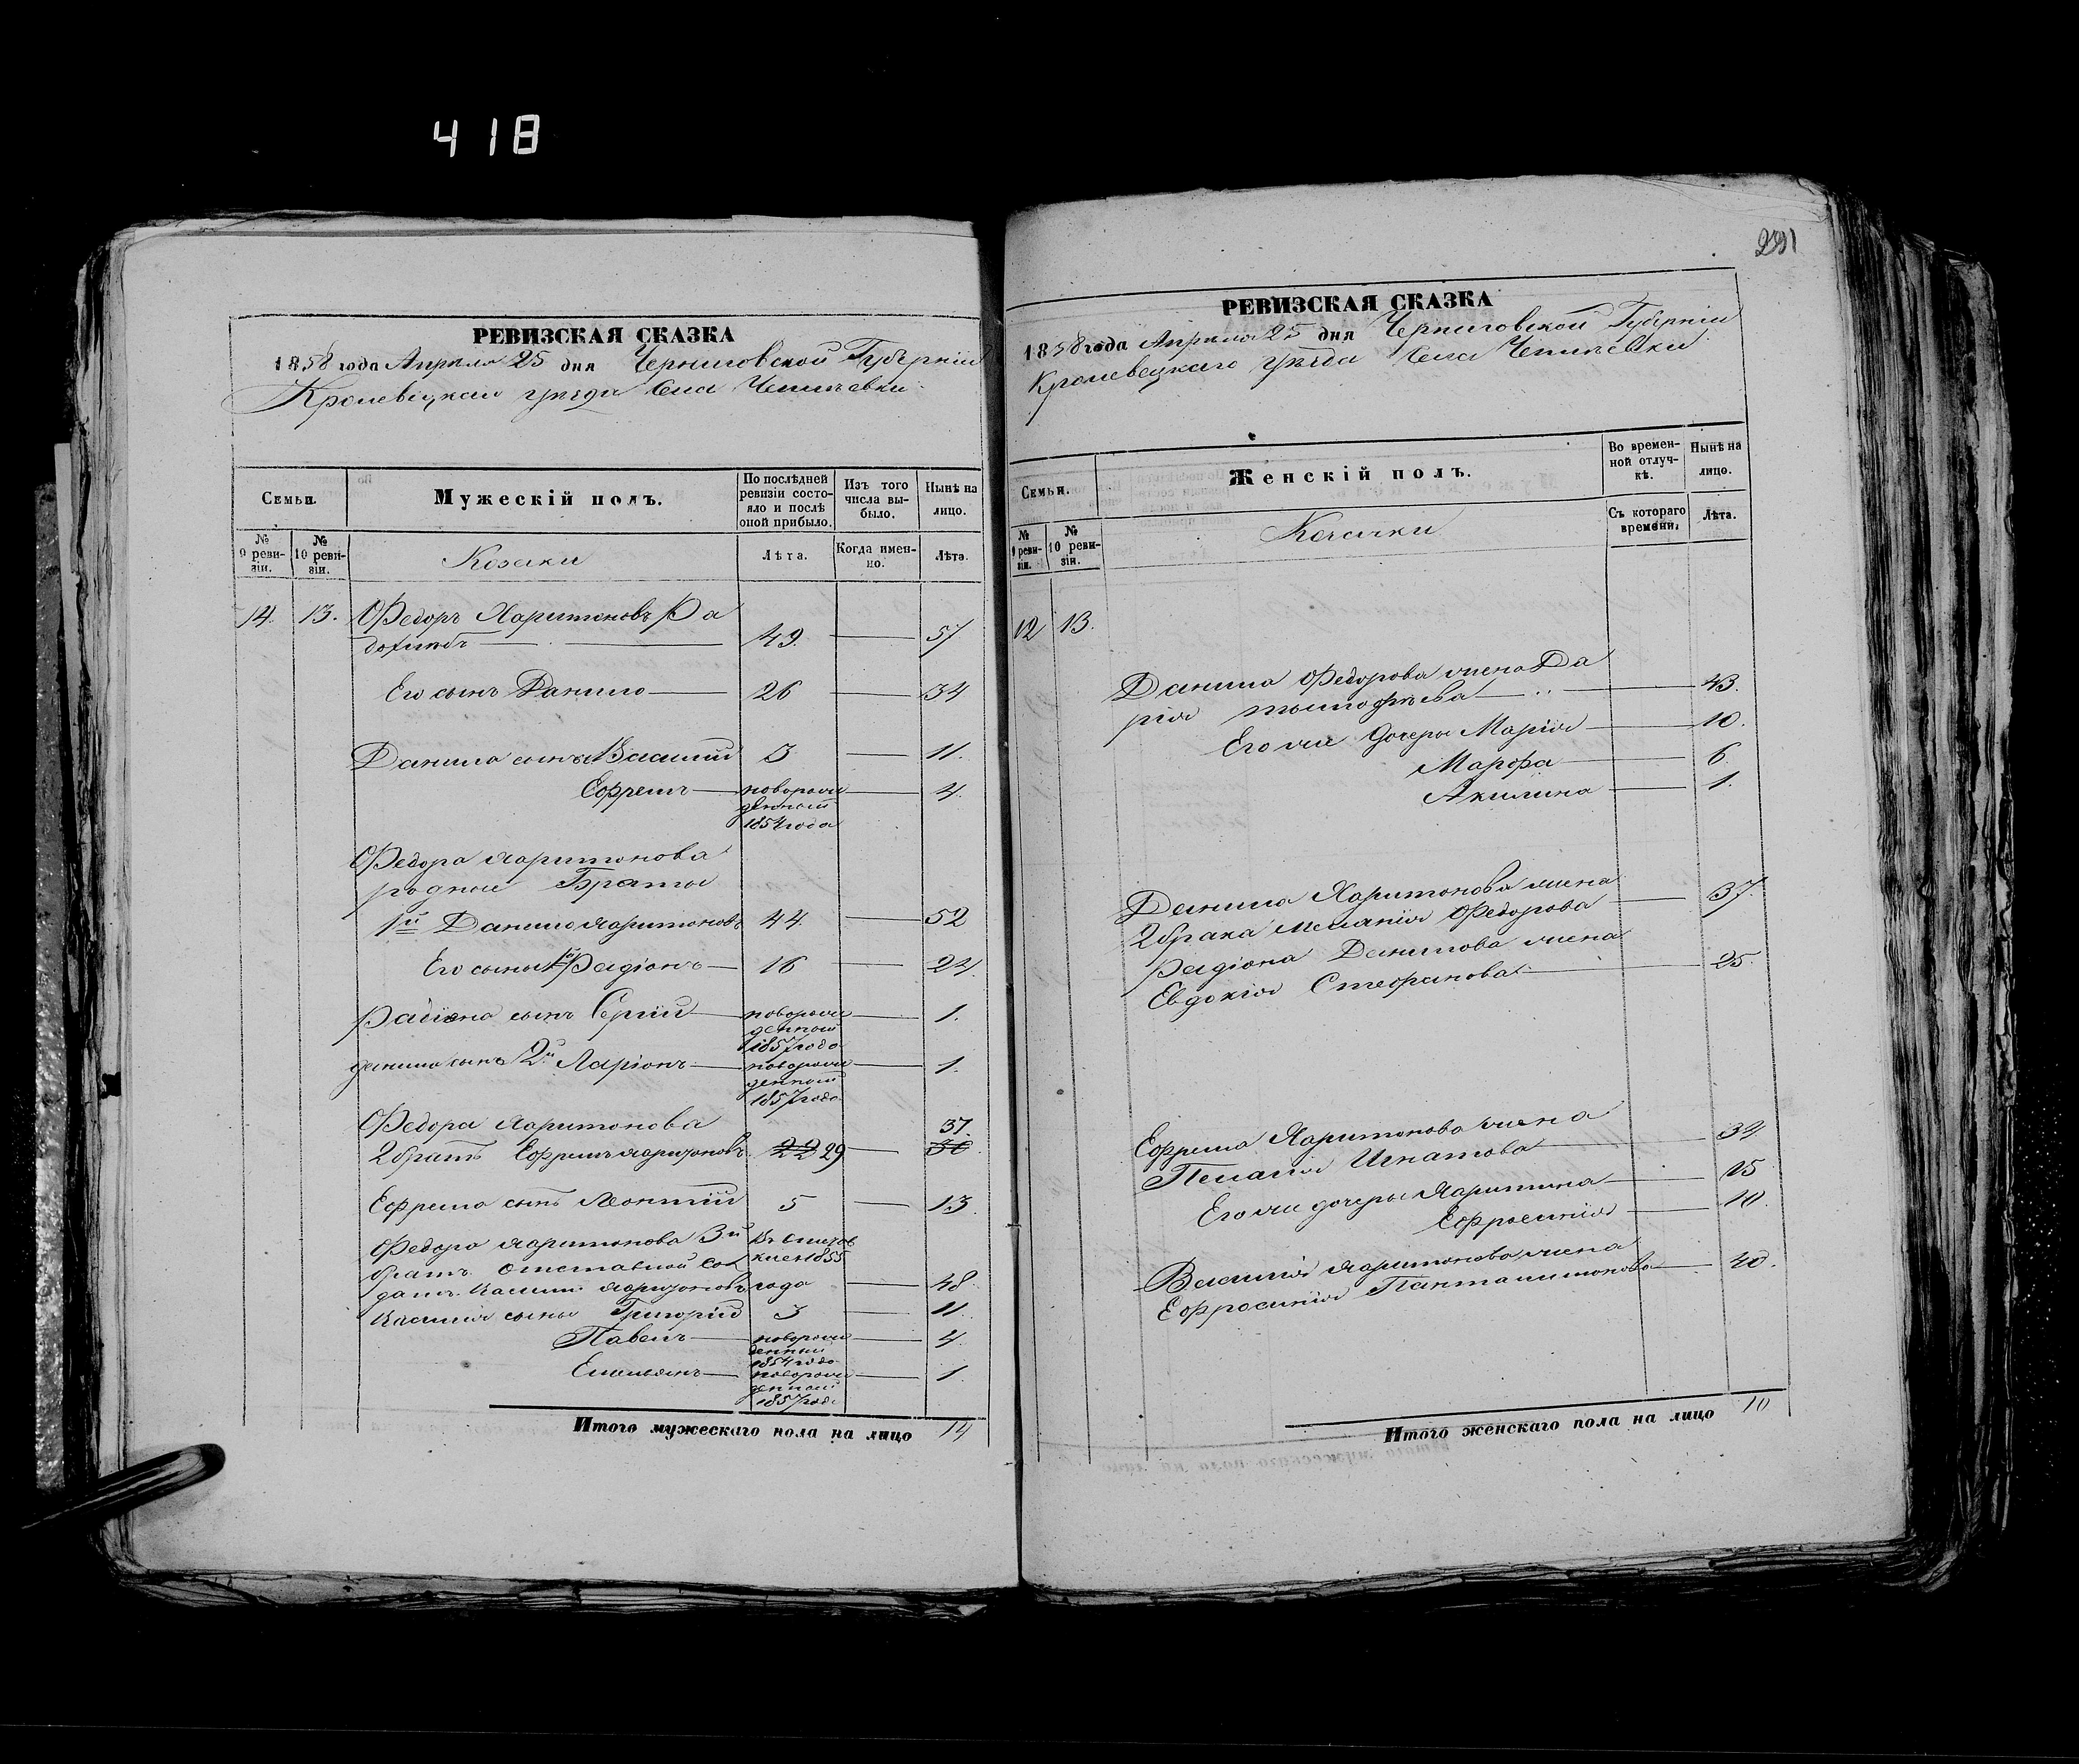 418
РЕВИЗСКАЯ СКАЗКА
1858 года Апреля 25 дня Черниговской Губерніи
Кролевецкаго уезда Села Чепиевки
Семьи.
Мужескій полъ.
По послѣдней ревизіи состо-
яло и послѣ
оной прибыло.
Изъ того
числа вы-
было.
Нынѣ на
лицо.
№
9 реви-
зіи.
№
10 реви-
зіи.
Козаки
Лѣта.
Когда имен-
но.
Лѣта.
14. 13. Федоръ Харитоновъ
49. 57
Его сынъ Данило 26 34
Данила сынъ Василий 3 11.
Ефремъ новорож
денный
1854 года 4.
Федора Харитонова
родные Браты
1й Данило Харитоновъ 44. 52
Его сыны 1й Радіонъ 16 24
Радіона сынъ Сергий новорож
денный
1857 года 1.
Данила сынъ 2й Ларіонъ новорож
денный
1857 года 1.
Федора Харитонова 37.
2 братъ Ефремъ Харитоновъ 22 29 30
Ефрема сынъ Леонтий 5 13.
Федора Харитонова 3й
братъ Отставной Сол
датъ Василий Харитоновъ года 48
1855
Василия сыны Григорий 3 11.
Павелъ новорож
денный
1854 года 4.
Емельянъ новорож
денный
1857 года 1.
Итого мужескаго пола на лицо 14
291
РЕВИЗСКАЯ СКАЗКА
1858 года Апреля 25 дня Черниговской Губерніи
Кролевецкаго уѣзда Села Чепиевки
Семьи.
Женскій полъ.
Во времен-
ной отлуч-
кѣ.
Нынѣ на
лицо.
№
9 реви-
зіи.
№
10 реви-
зіи.
Козачки
Съ котораго
времени.
Лѣта.
12 13.
Данила Федорова жена Да
рія Тимофѣева 43.
Его же дочеры Марія 10.
Марфа 6.
Акилина 1.
Данила Харитонова жена
2 брака Меланія Федорова 37.
Радіона Данилова жена
Евдокія Стефанова 25.
Ефрема Харитонова жена
Пелагія Игнатова 34
Его же дочеры Харитина 15
Ефросинія 10.
Василія Харитонова жена
Ефросинія Пантелимонова 40.
Итого женскаго пола на лицо 10